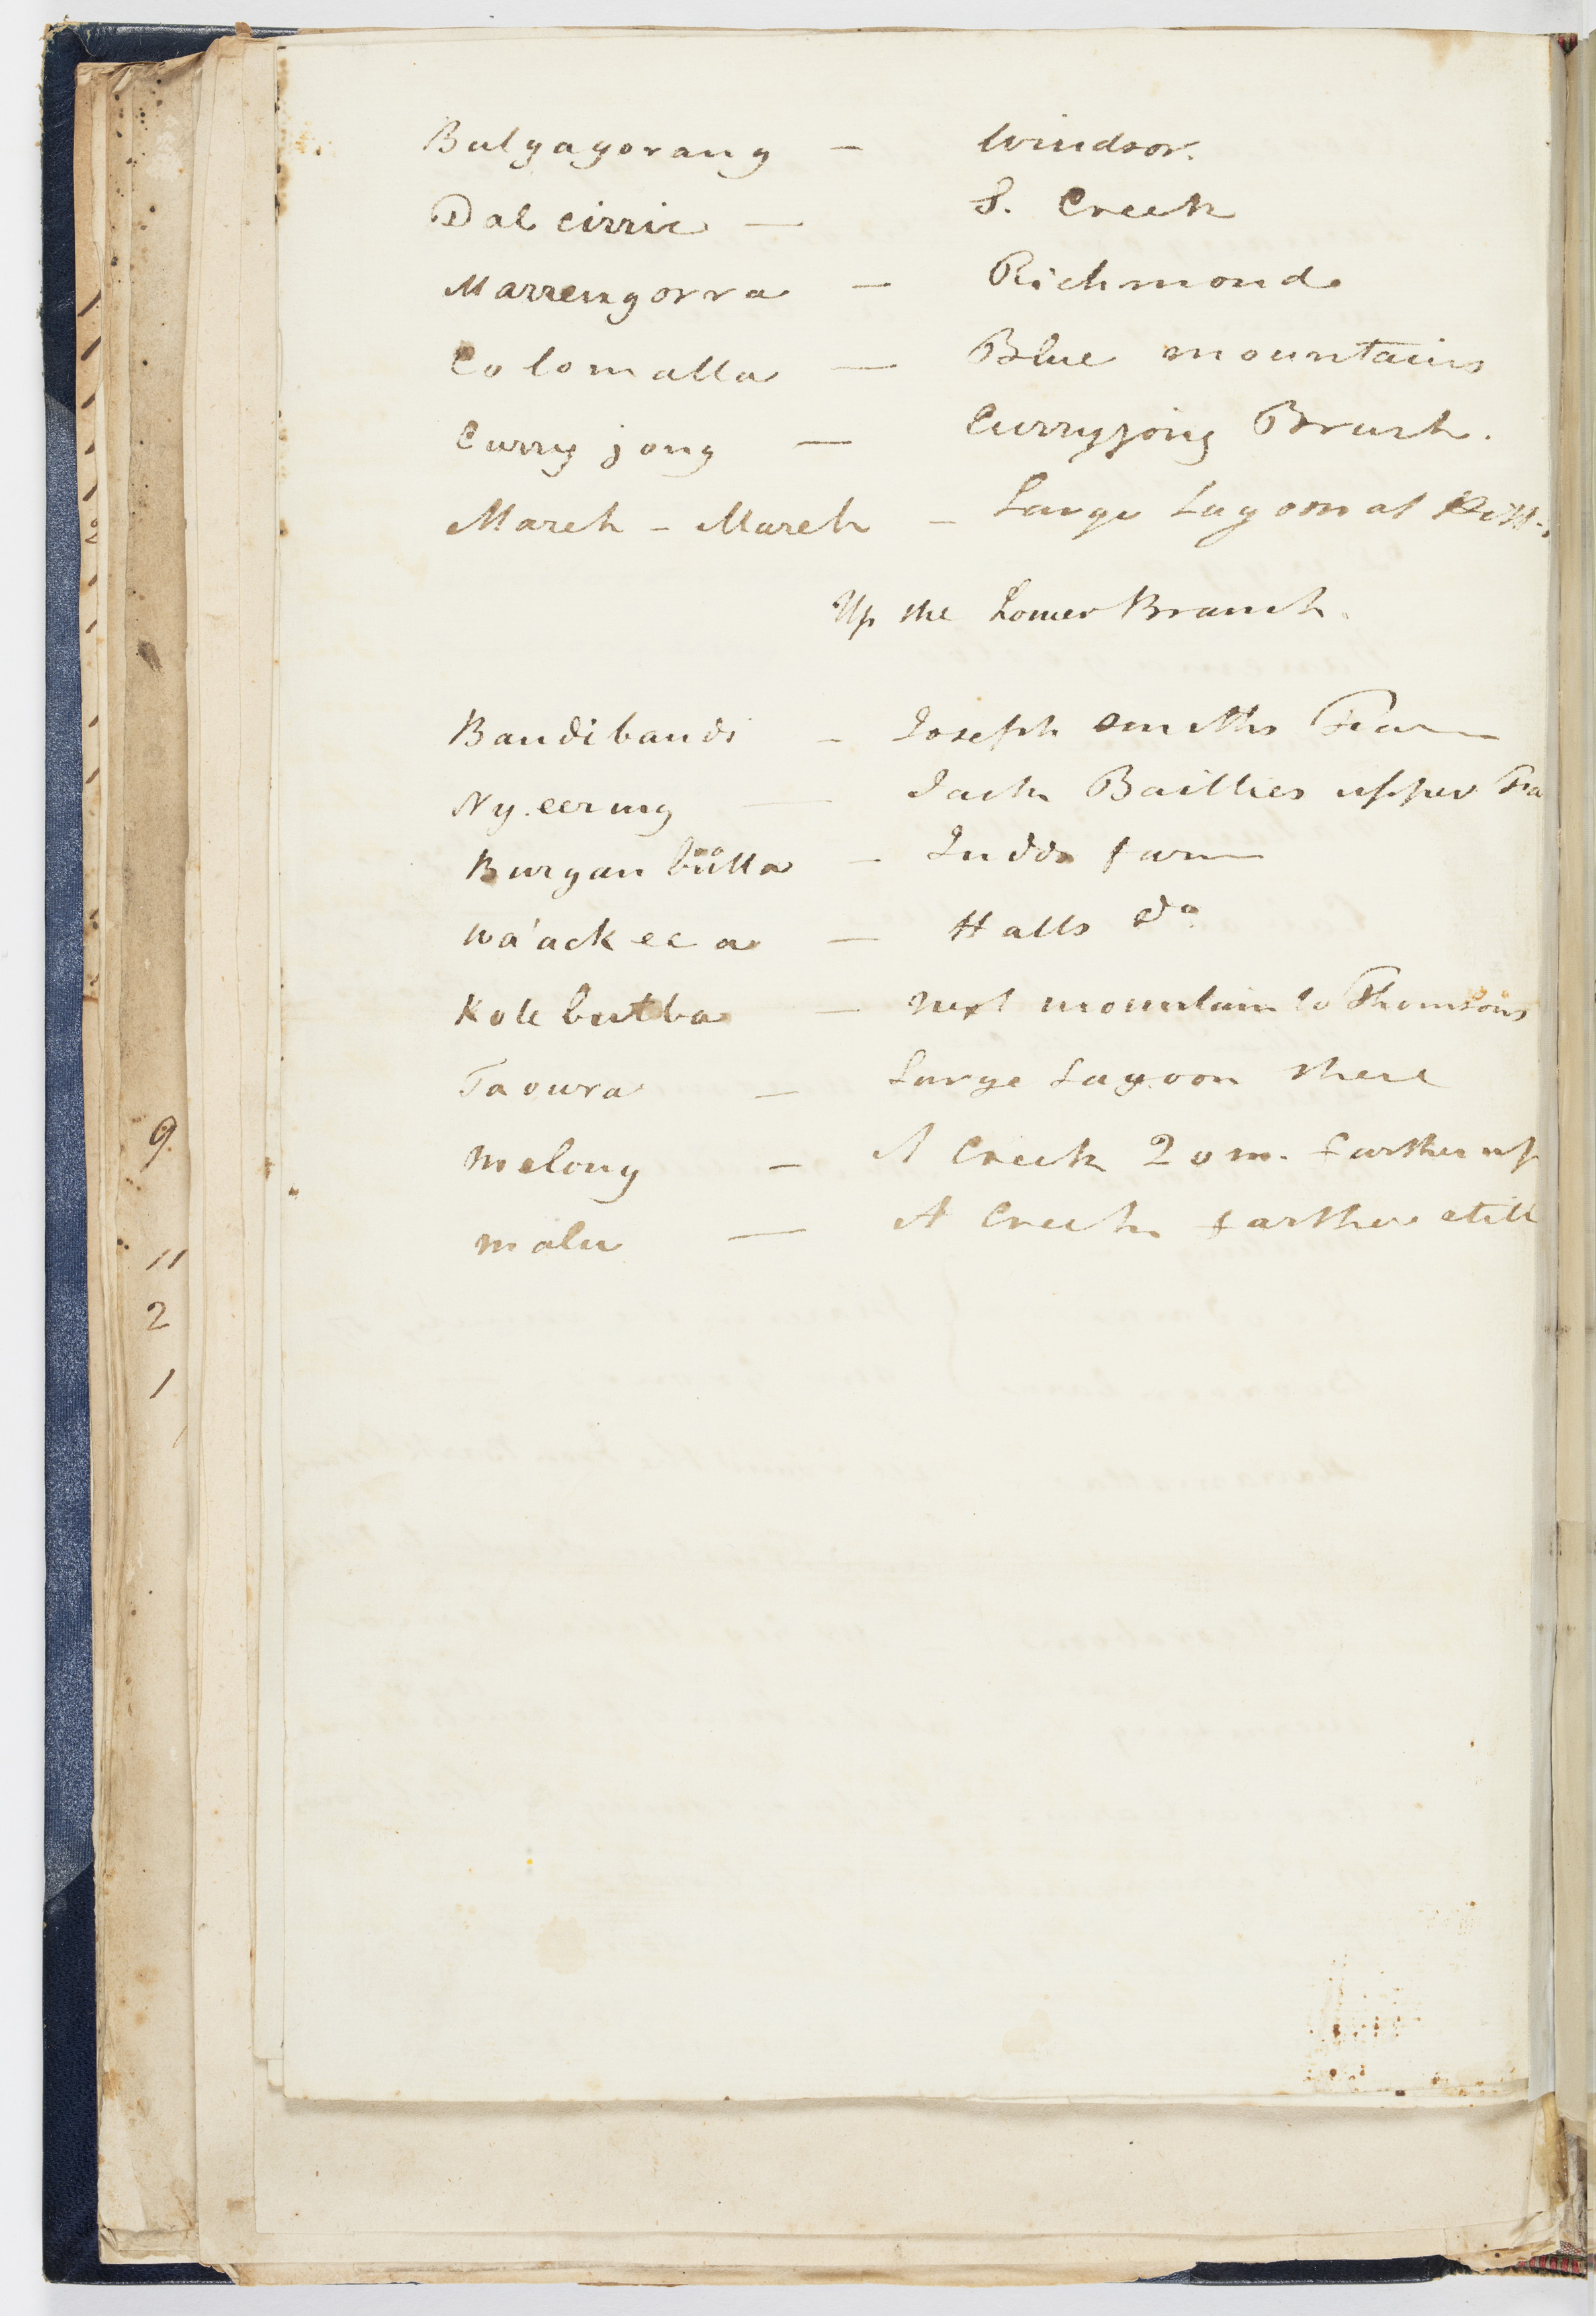 Bulyagorang — Windsor.
Dal cirric — S. Creek
Marrengorra — Richmond
Colomatta — Blue mountains
Curry jong — Curryjong Brush.
Mareh - Mareh - Large Lagoon at
Up the Lower Branch.
Bandibandi - Joseph Smiths Farm
Ny.eering — Jack Baillies upper Fa
Burgan butta - Judds farm
Wa'ackeea — Halls do.
Kole butba — next mountain to Thomsons
Taoura — Large Lagoon there
Melong — A Creek 2 o m. farther up
Malu — A Creek farther still
9.
11
2
1